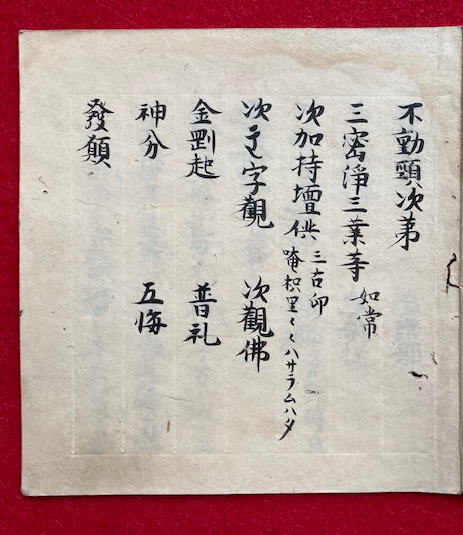 不動頸次第
三密淨三業等 如常
次加持壇供 三古印 唵枳里〻〻ハサラムハタ
次字觀 次觀佛
金剛起 普礼
神分 五悔
發願